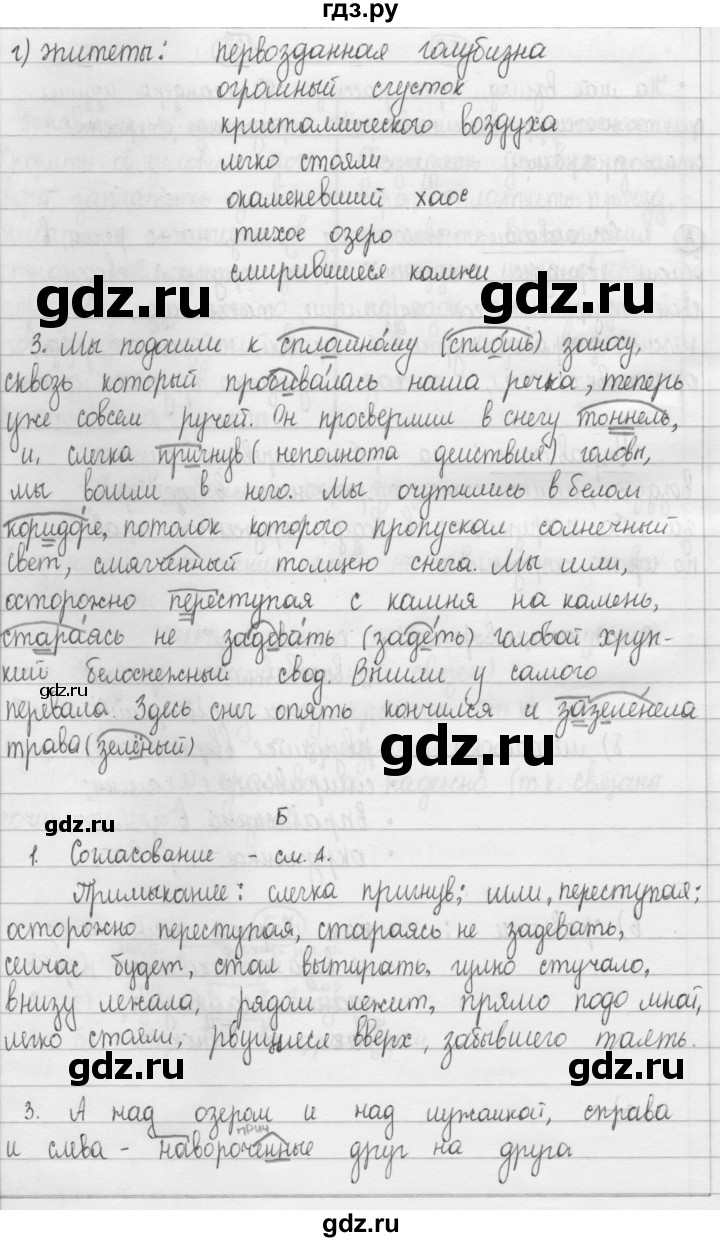 гдз.ру
г) эпитеты: первозданная голубизна
огромный сгусток
кристаллического воздуха
легко стояли
окаменевший хаос
тихое озеро
смирившиеся камни
gdz.ru gdz.ru
3. Мы подошли к сплошному (сплошь) заносу,
сквозь который пробивалась наша речка, теперь
уже совсем ручей. Он просверлил в снегу тоннель,
и, слегка пригнув (неполнота действия) головы,
мы вошли в него. Мы очутились в белом
коридоре, потолок которого пропускал солнечный
свет, смягчённый толщею снега. Мы шли,
осторожно переступая с камня на камень,
стараясь не задевать (задеть) головой хруп-
кий белоснежный свод. Вышли у самого
gdz.ru
перевала. Здесь снег опять кончился и зазеленела
трава (зелёный)
gdz.ru
Б
gdz.ru
1. Согласование - см. А.
Примыкание: слегка пригнув; шли, переступая;
осторожно переступая, стараясь не задевать,
сейчас будет, стал вытирать, гулко стучало,
внизу лежала, рядом лежит, прямо подо мной,
легко стояли, рвущиеся вверх, забывшего таять.
gdz.ru gdz.ru
3. А над озером и над лужайкой, справа
прич
и слева - навороченные друг на друга
gdz.ru